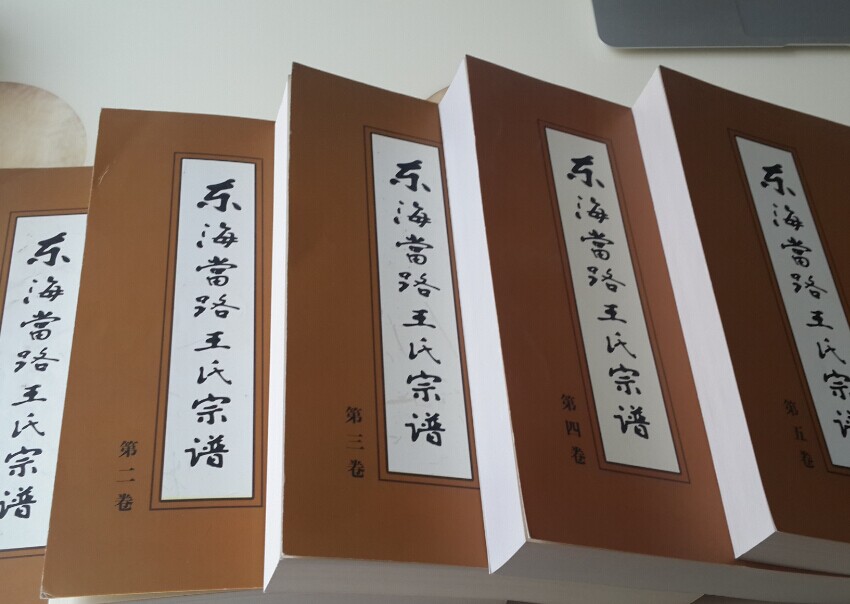 东海當路王氏宗谱
东海當路王氏宗谱
第二卷
东海當路王氏宗谱
第三卷
东海當路王氏宗谱
第四卷
东海當路王氏宗谱
第五卷